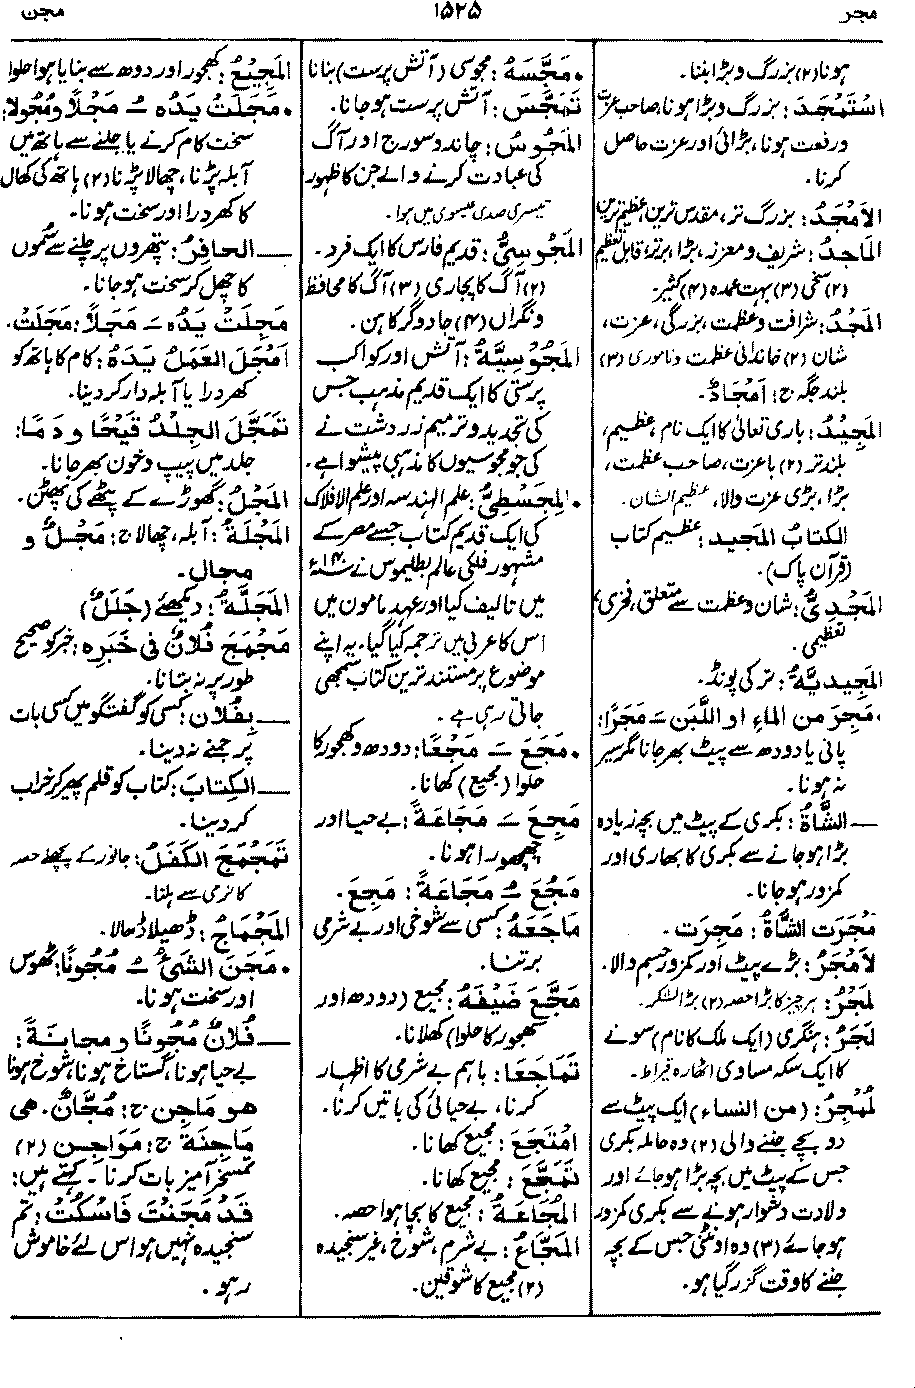 مجر ۱۵۲۵ مجن
ہونا (۲) بزرگ و بڑا بننا۔
اسْتَمْجَدَ: بزرگ و بڑا ہونا، صاحب عزت
ورفعت ہونا، بڑائی اور عزت حاصل
کرنا۔
الأَمْجَدُ: بزرگ تر، مقدس ترین، عظیم ترین
المَاجِدُ: شریف و معزز، بڑا، برتر، قابل تعظیم
(۲) سخی (۳) بہت عمدہ (۴) کثیر۔
المَجْدُ: شرافت و عظمت، بزرگی، عزت،
شان (۲) خاندانی عظمت و ناموری (۳)
بلند جگہ ج: أَمْجَادٌ۔
المَجِيْدُ: باری تعالیٰ کا ایک نام، عظیم،
بلند تر (۲) باعزت، صاحب عظمت،
بڑا، بڑی عزت والا، عظیم الشان۔
الكتابُ المَجيد: عظیم کتاب
(قرآن پاک)۔
المَجْدِيُّ: شان و عظمت سے متعلق، فخری،
تعظیمی۔
المَجِيديَّةُ: ترکی پونڈ۔
• مَجِرَ من الماءِ او اللَّبَن ــَـ مَجَرًا:
پانی یا دودھ سے پیٹ بھر جانا مگر سیر
نہ ہونا۔
ــــ الشَّاةُ: بکری کے پیٹ میں بچہ زیادہ
بڑا ہو جانے سے بکری کا بھاری اور
کمزور ہو جانا۔
مُجِرَت الشَّاةُ: مَجِرَت۔
لأَمْجَرُ: بڑے پیٹ اور کمزور جسم والا۔
لمَجْرُ: ہر چیز کا بڑا حصہ (۲) بڑا لشکر۔
لمَجَرُ: ہنگری (ایک ملک کا نام) سونے
کا ایک سکہ مساوی اٹھارہ قیراط۔
لمُمْجِرُ: (من النساء) ایک پیٹ سے
دو بچے جننے والی (۲) وہ حاملہ بکری
جس کے پیٹ میں بچہ بڑا ہو جائے اور
ولادت دشوار ہونے سے بکری کمزور
ہو جائے (۳) وہ اونٹنی جس کے بچہ
جننے کا وقت گزر گیا ہو۔
• مَجَّسَهُ: مجوسی (آتش پرست) بنانا
تَمَجَّسَ: آتش پرست ہو جانا۔
المَجُوسُ: چاند و سورج اور آگ
کی عبادت کرنے والے جن کا ظہور
تیسری صدی عیسوی میں ہوا۔
المَجُوسِيُّ: قدیم فارس کا ایک فرد۔
(۲) آگ کا پجاری (۳) آگ کا محافظ
ونگراں (۴) جادوگر کاہن۔
المَجُوْسِيَّةُ: آتش اور کواکب
پرستی کا ایک قدیم مذہب جس
کی تجدید و ترمیم زردشت نے
کی جو مجوسیوں کا مذہبی پیشوا ہے۔
• المِجَسْطِيُّ: علم الہندسہ اور علم الافلاک
کی ایک قدیم کتاب جسے مصر کے
مشہور فلکی عالم بطلیموس نے ۱۴۰ء
میں تالیف کیا اور عہد مامون میں
اس کا عربی میں ترجمہ کیا گیا۔ یہ اپنے
موضوع پر مستند ترین کتاب سمجھی
جاتی رہی ہے۔
• مَجَعَ ــَـ مَجْعًا: دودھ و کھجور کا
حلوا (مجیع) کھانا۔
مَجِعَ ــَـ مَجَاعَةً: بے حیا اور
چھچھورا ہونا۔
مَجُعَ ــُـ مَجَاعَةً: مَجِعَ۔
مَاجَعَهُ: کسی سے شوخی اور بے شرمی
برتنا۔
مَجَّعَ ضَيْفَهُ: مجیع (دودھ اور
کھجور کا حلوا) کھلانا۔
تَمَاجَعَا: باہم بے شرمی کا اظہار
کرنا، بے حیائی کی باتیں کرنا۔
امْتَجَعَ: مجیع کھانا۔
تَمَجَّعَ: مجیع کھانا۔
المُجَاعَةُ: مجیع کا بچا ہوا حصہ۔
المَجَّاعُ: بے شرم، شوخ، غیر سنجیدہ
(۲) مجیع کا شوقین۔
المَجِيْعُ: کھجور اور دودھ سے بنایا ہوا حلوا
• مَجَلَتْ يَدُه ــُـ مَجْلاً ومُجُولا:
سخت کام کرنے یا چلنے سے ہاتھ میں
آبلہ پڑنا، چھالا پڑنا (۲) ہاتھ کی کھال
کا کھردرا اور سخت ہونا۔
ــــ الحافِرُ: پتھروں پر چلنے سے سُموں
کا چھل کر سخت ہو جانا۔
مَجِلَتْ يَدُه ــَـ مَجَلاً: مَجَلَتْ۔
أَمْجَلَ العَمَلُ يَدَهُ: کام کا ہاتھ کو
کھردرا یا آبلہ دار کر دینا۔
تَمَجَّلَ الجِلْدُ قَيْحًا ودَمًا:
جلد میں پیپ و خون بھر جانا۔
المَجْلُ: گھوڑے کے پٹھے کی پھٹن۔
المَجْلَةُ: آبلہ، چھالا ج: مَجْلٌ و
مجال۔
المَجَلَّةُ: دیکھئے (جَلَلَ)
مَجْمَجَ فُلَانٌ فِي خَبَرِه: خبر کو صحیح
طور پر نہ بتانا۔
ــــ بِفُلَان: کسی کو گفتگو میں کسی بات
پر جمنے نہ دینا۔
ــــ الكِتابَ: کتاب کو قلم پھیر کر خراب
کر دینا۔
تَمَجْمَجَ الكَفَلُ: جانور کے پچھلے حصہ
کا نرمی سے ہلنا۔
المَجْمَاجُ: ڈھیلا ڈھالا۔
• مَجَنَ الشيءُ ــُـ مُجُونًا: ٹھوس
اور سخت ہونا۔
ــــ فُلانٌ مُجُونًا و مجانةً:
بے حیا ہونا، گستاخ ہونا، شوخ ہونا
هو مَاجِن ج: مُجَّانٌ۔ هي
مَاجِنَة ج: مَوَاجِن (۲)
تمسخر آمیز بات کرنا۔ کہتے ہیں:
قَدْ مَجَنْتَ فَاسْكُتْ: تم
سنجیدہ نہیں ہو اس لئے خاموش
رہو۔